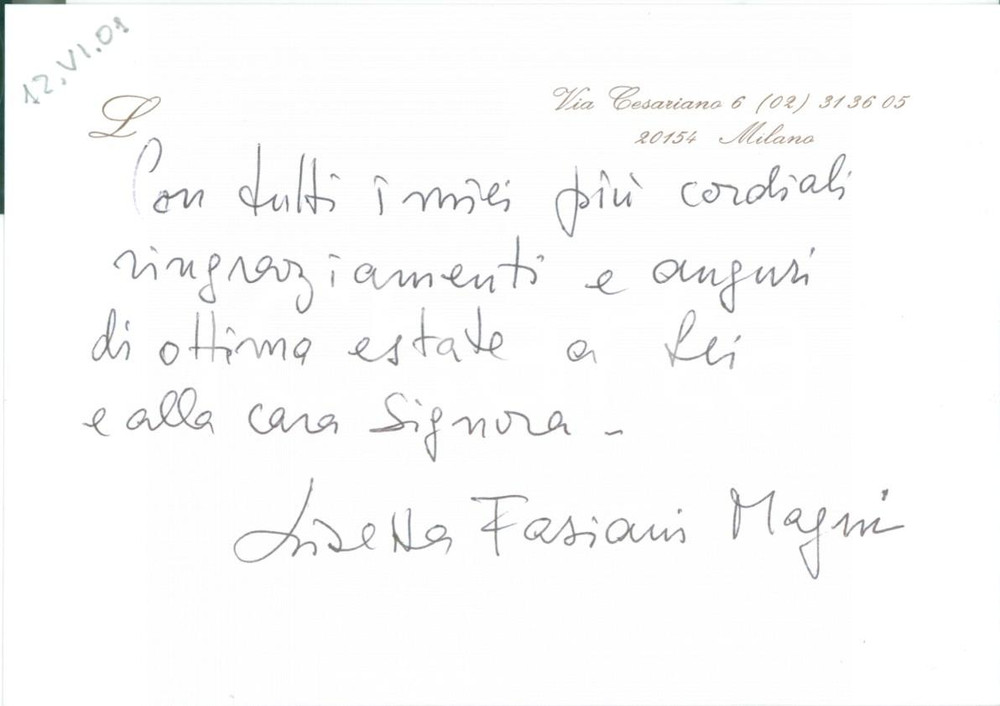 12.VI.01
L
Via Cesariano 6 (02) 313605
20154 Milano
Con tutti i miei più cordiali
ringraziamenti e auguri
di ottima estate a Lei
e alla cara Signora -
Lisetta Fasiani Magni